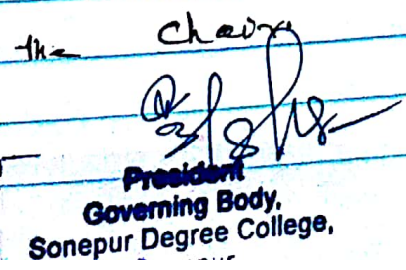 the Chair.
President
Governing Body,
Sonepur Degree College,